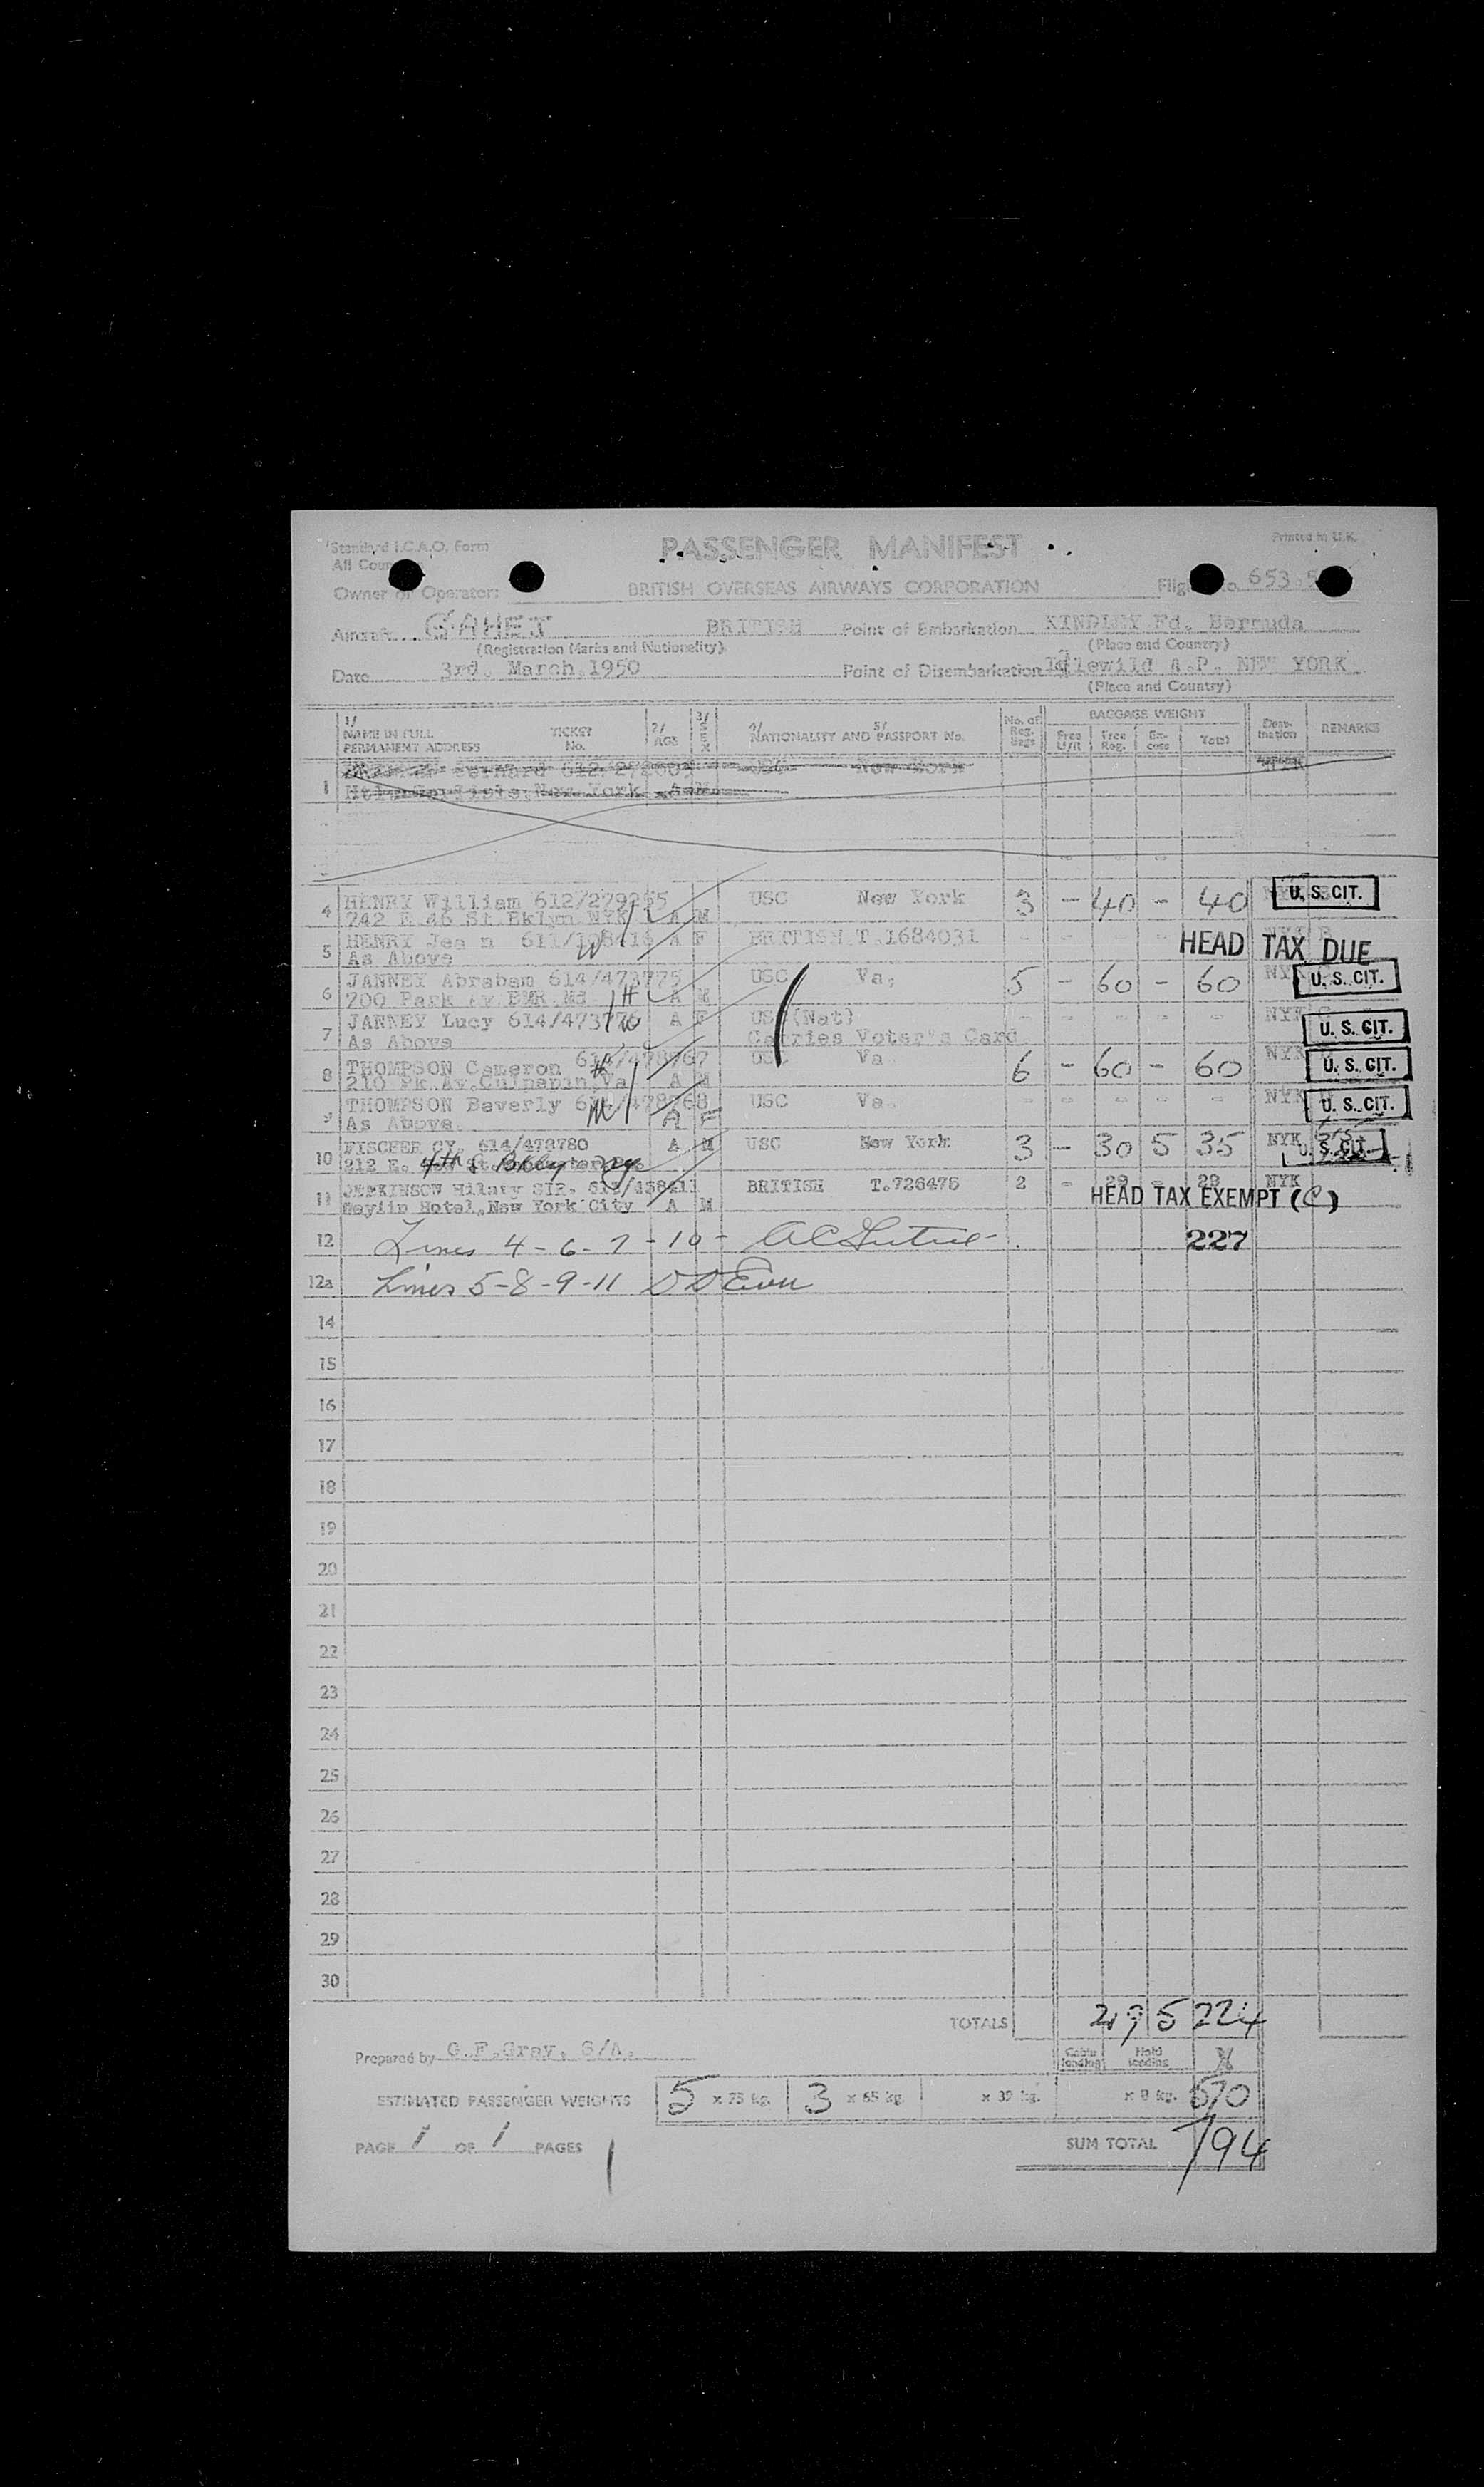 Standard I.C.A.O. Form
PASSENGER MANIFEST
Printed in U.K.
All
Owner or Operator: BRITISH OVERSEAS AIRWAYS CORPORATION 653
Aircraft G'AHEJ BRITISH Point of Embarkation KINDLEY Fd. Bermuda
(Registration Marks and Nationality) (Place and Country)
Date 3rd. March.1950 Point of Disembarkation Idlewild A.P. NEW YORK
(Place and Country)
1/ NAME IN FULL PERMANENT ADDRESS TICKET No. 2/ AGE 3/ SEX 4/ NATIONALITY AND 5/ PASSPORT No. No. of Reg. Bags BAGGAGE WEIGHT Free Reg. Ex- cess Total Dest- ination REMARKS
1 New York
4 HENRY William 612/279255 USC New York 3 - 40 - 40 U. S. CIT.
742 E 46 St. Bklyn NYK A M
5 HENRY Jea n A F BRITISH.T.1684031 HEAD TAX DUE
As Above
6 JANNEY Abraham 614/473775 USC Va. 5 - 60 - 60 NYK U. S. CIT.
700 Park Av. Md A M
7 JANNEY Lucy 614/473776 A F USC(Nat) - - - - - NYK U. S. CIT.
As Above Carries Voter's Card
8 THOMPSON Cameron USC Va 6 - 60 - 60 NYK U. S. CIT.
210 Pk.Av.Culpepin Va A M
9 THOMPSON Beverly USC Va. - - - - - NYK U. S. CIT.
As Above A F
10 FISCHER CY. 614/473780 A M USC New York 3 - 30 5 35 NYK U. S. CIT.
212 E.
11 JENKINSON Hilary SIR. BRITISH T.726475 2 - 29 - 29 NYK
Hotel, New York City A M HEAD TAX EXEMPT (C)
12 Lines 4-6-7-10- 227
12a Lines 5-8-9-11
14
15
16
17
18
19
20
21
22
23
24
25
26
27
28
29
30
TOTALS 5 224
Prepared by G.F.Gray, S/A.
Cabin loading Hold loading
ESTIMATED PASSENGER WEIGHTS 5 x 75 kg. 3 x 65 kg. x 39 kg. x 8 kg. 570
PAGE 1 OF 1 PAGES SUM TOTAL 794